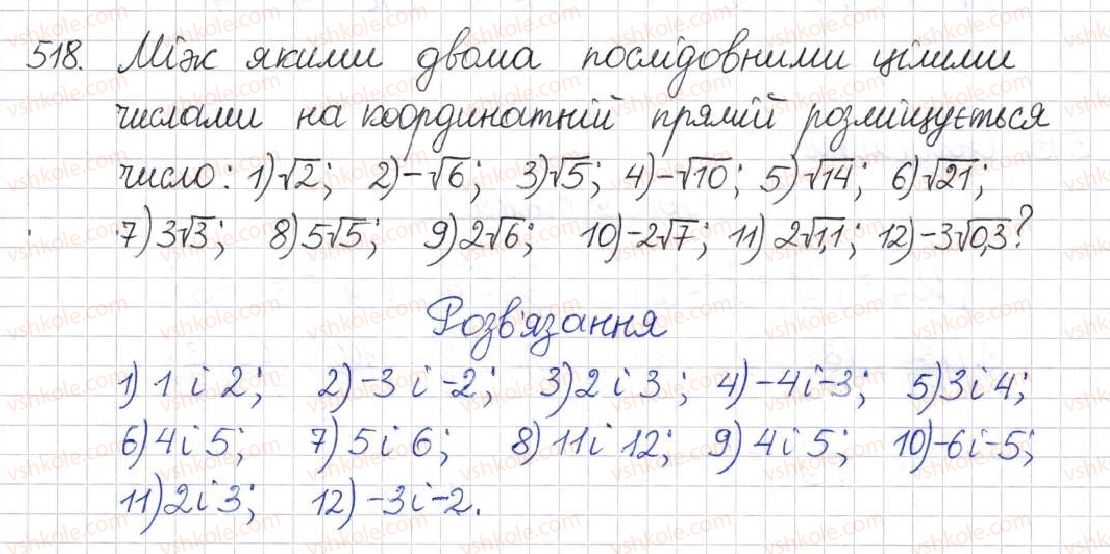 518. Між якими двома послідовними цілими
числами на координатній прямій розміщується
число: 1) √2; 2) -√6; 3) √5; 4) -√10; 5) √14; 6) √21;
7) 3√3; 8) 5√5; 9) 2√6; 10) -2√7; 11) 2√1,1; 12) -3√0,3?
Розв'язання
1) 1 і 2; 2) -3 і -2; 3) 2 і 3; 4) -4 і -3; 5) 3 і 4;
6) 4 і 5; 7) 5 і 6; 8) 11 і 12; 9) 4 і 5; 10) -6 і -5;
11) 2 і 3; 12) -3 і -2.